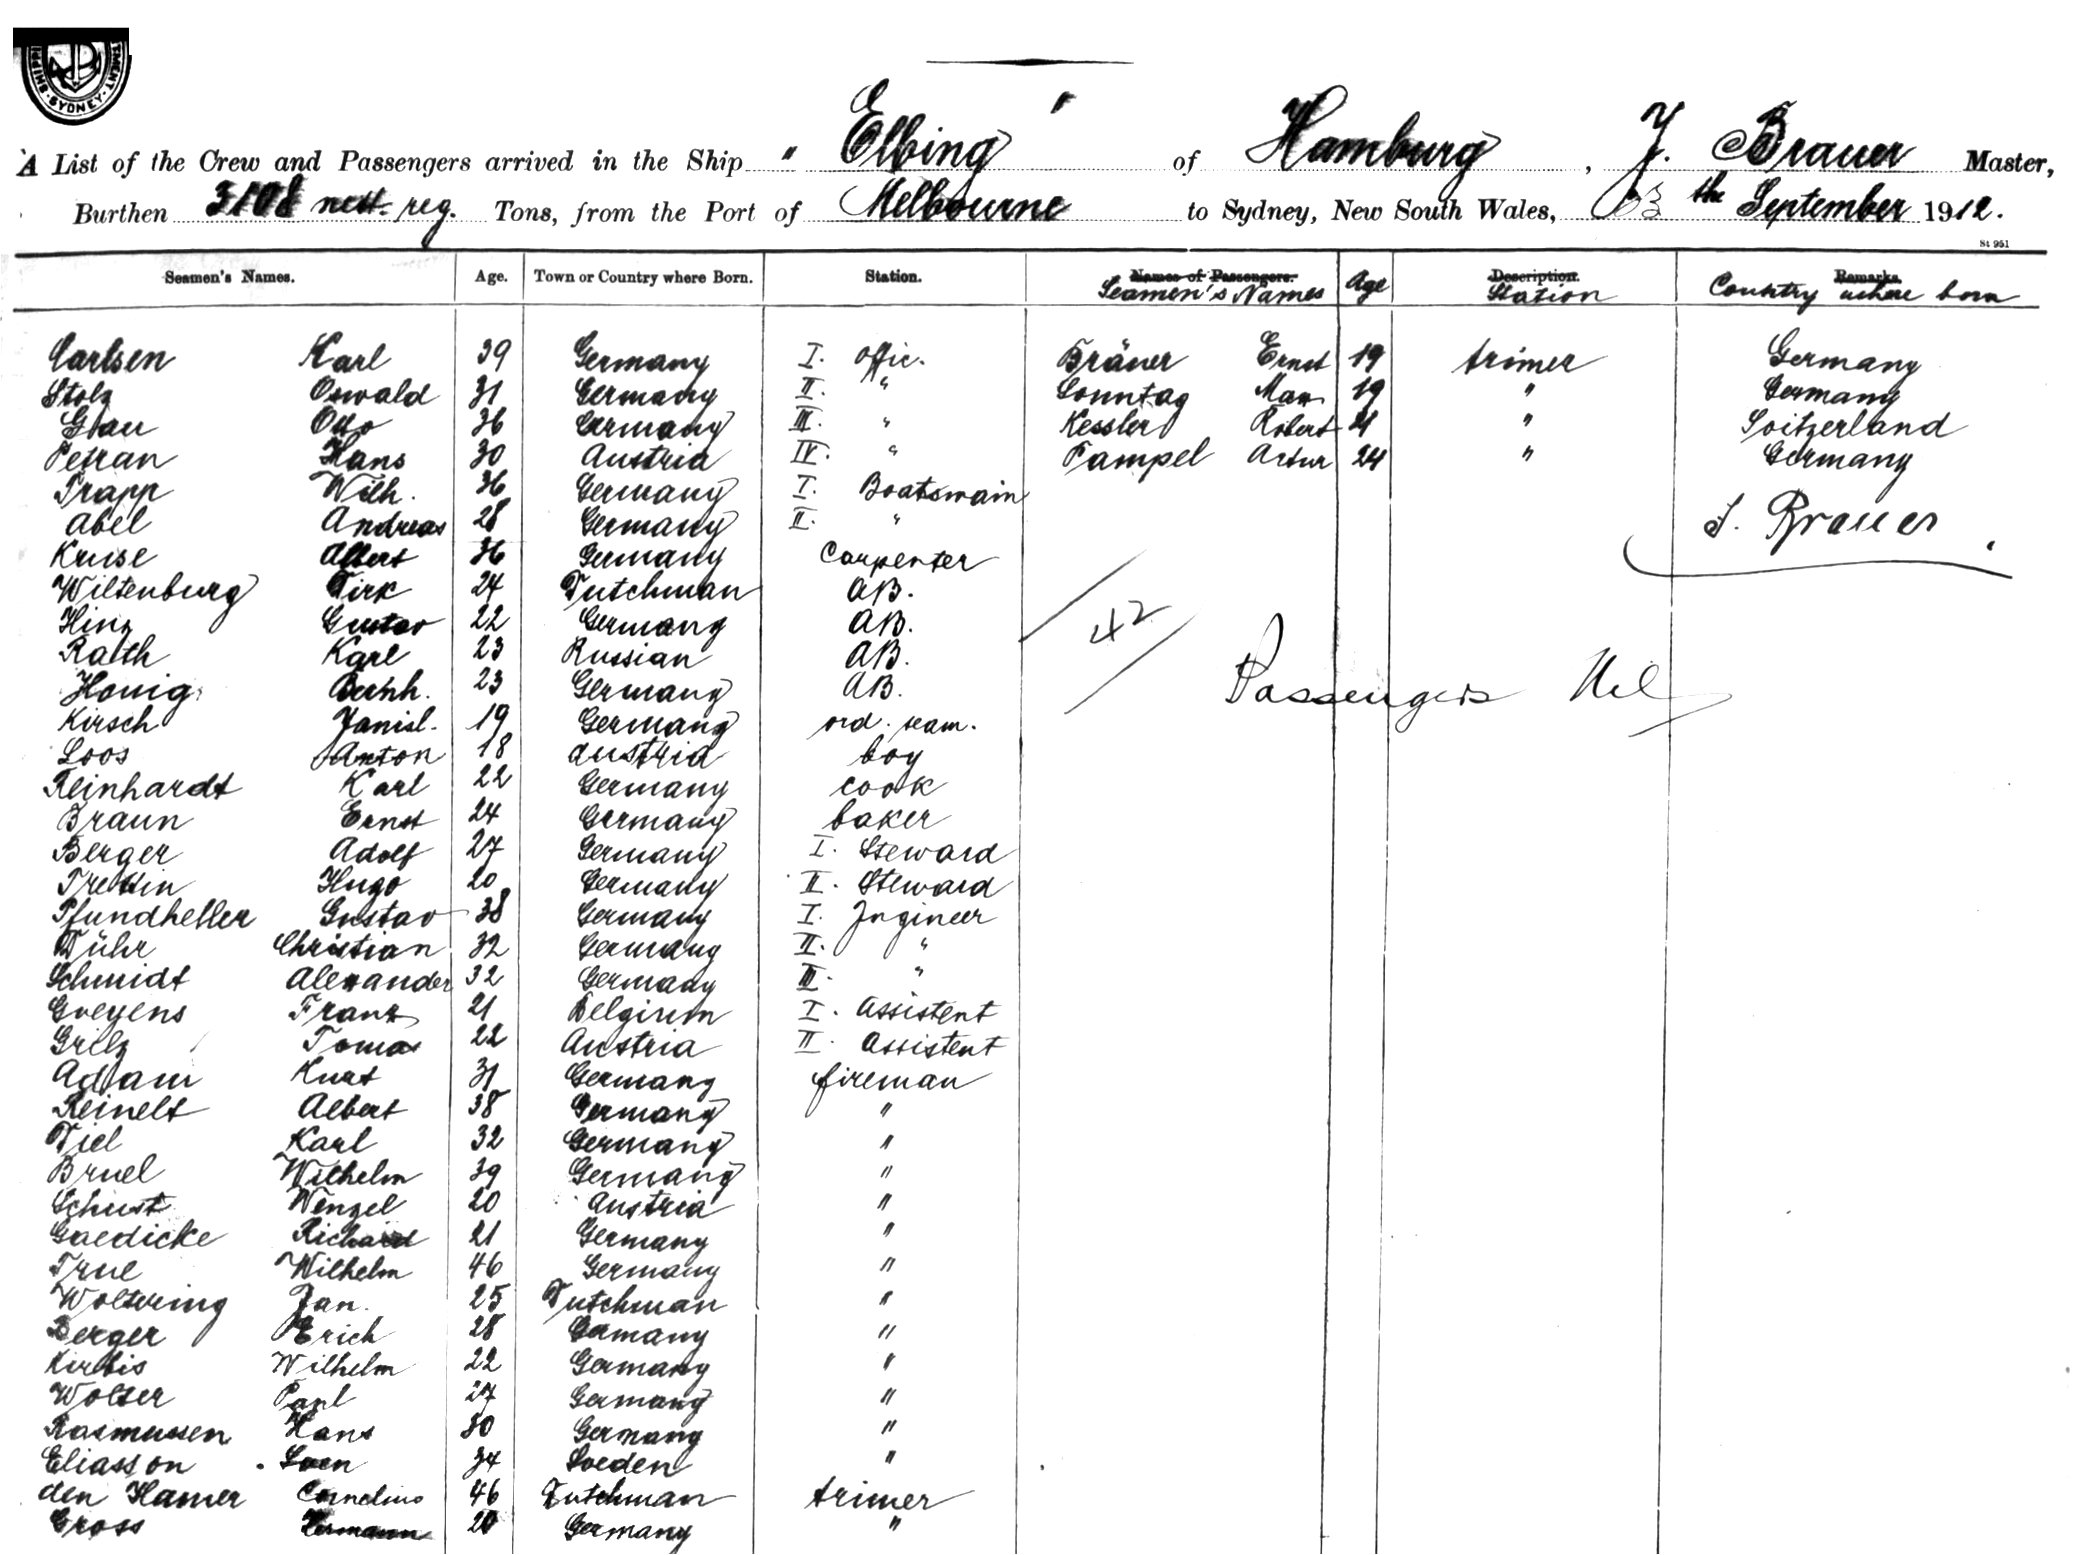 SHIPPING SYDNEY
A List of the Crew and Passengers arrived in the Ship "Elbing" of Hamburg, J. Brauer Master,
Burthen 3108 nett. reg. Tons, from the Port of Melbourne to Sydney, New South Wales, the September 1912.
St 951
Seamen's Names. Age. Town or Country where Born. Station. Names of Passengers. Seamen's Names Age Description. Station Remarks. Country where born
Carlsen Karl 39 Germany I. offic. Bräuer Ernst 19 trimer Germany
Stolz Oswald 31 Germany II. " Sonntag Max 19 " Germany
Grau Otto 36 Germany III. " Kessler Robert 21 " Soitzerland
Petran Hans 30 Austria IV. " Pampel Artur 24 " Germany
Trapp Wilh. 36 Germany I. Boatswain
Abel Andreas 28 Germany II. " J. Brauer
Kruse Albert 36 Germany Carpenter
Wiltenburg Dirk 24 Dutchman AB.
Hinz Gustav 22 Germany AB. 42
Raith Karl 23 Russian AB.
Honig Bernh. 23 Germany AB. Passengers Nil
Kirsch Janisl. 19 Germany ord. seam.
Loos Anton 18 Austria boy
Reinhardt Karl 22 Germany cook
Braun Ernst 24 Germany baker
Berger Adolf 27 Germany I. Steward
Trettin Hugo 20 Germany II. Steward
Pfundheller Gustav 38 Germany I. Ingineer
Dühr Christian 32 Germany II. "
Schmidt Alexander 32 Germany III. "
Goeyens Franz 21 Belgium I. Assistent
Grilz Tomas 22 Austria II. Assistent
Adam Kurt 31 Germany fireman
Reinelt Albert 38 Germany "
Diel Karl 32 Germany "
Bruel Wilhelm 39 Germany "
Schust Wenzel 20 Austria "
Gaedicke Richard 21 Germany "
True Wilhelm 46 Germany "
Woltering Jan. 25 Dutchman "
Berger Erich 28 Germany "
Kirbis Wilhelm 22 Germany "
Wolter Paul 27 Germany "
Rasmussen Hans 30 Germany "
Eliasson Soen 34 Soeden "
den Hamer Cornelius 46 Dutchman trimer
Gross Hermann 20 Germany "